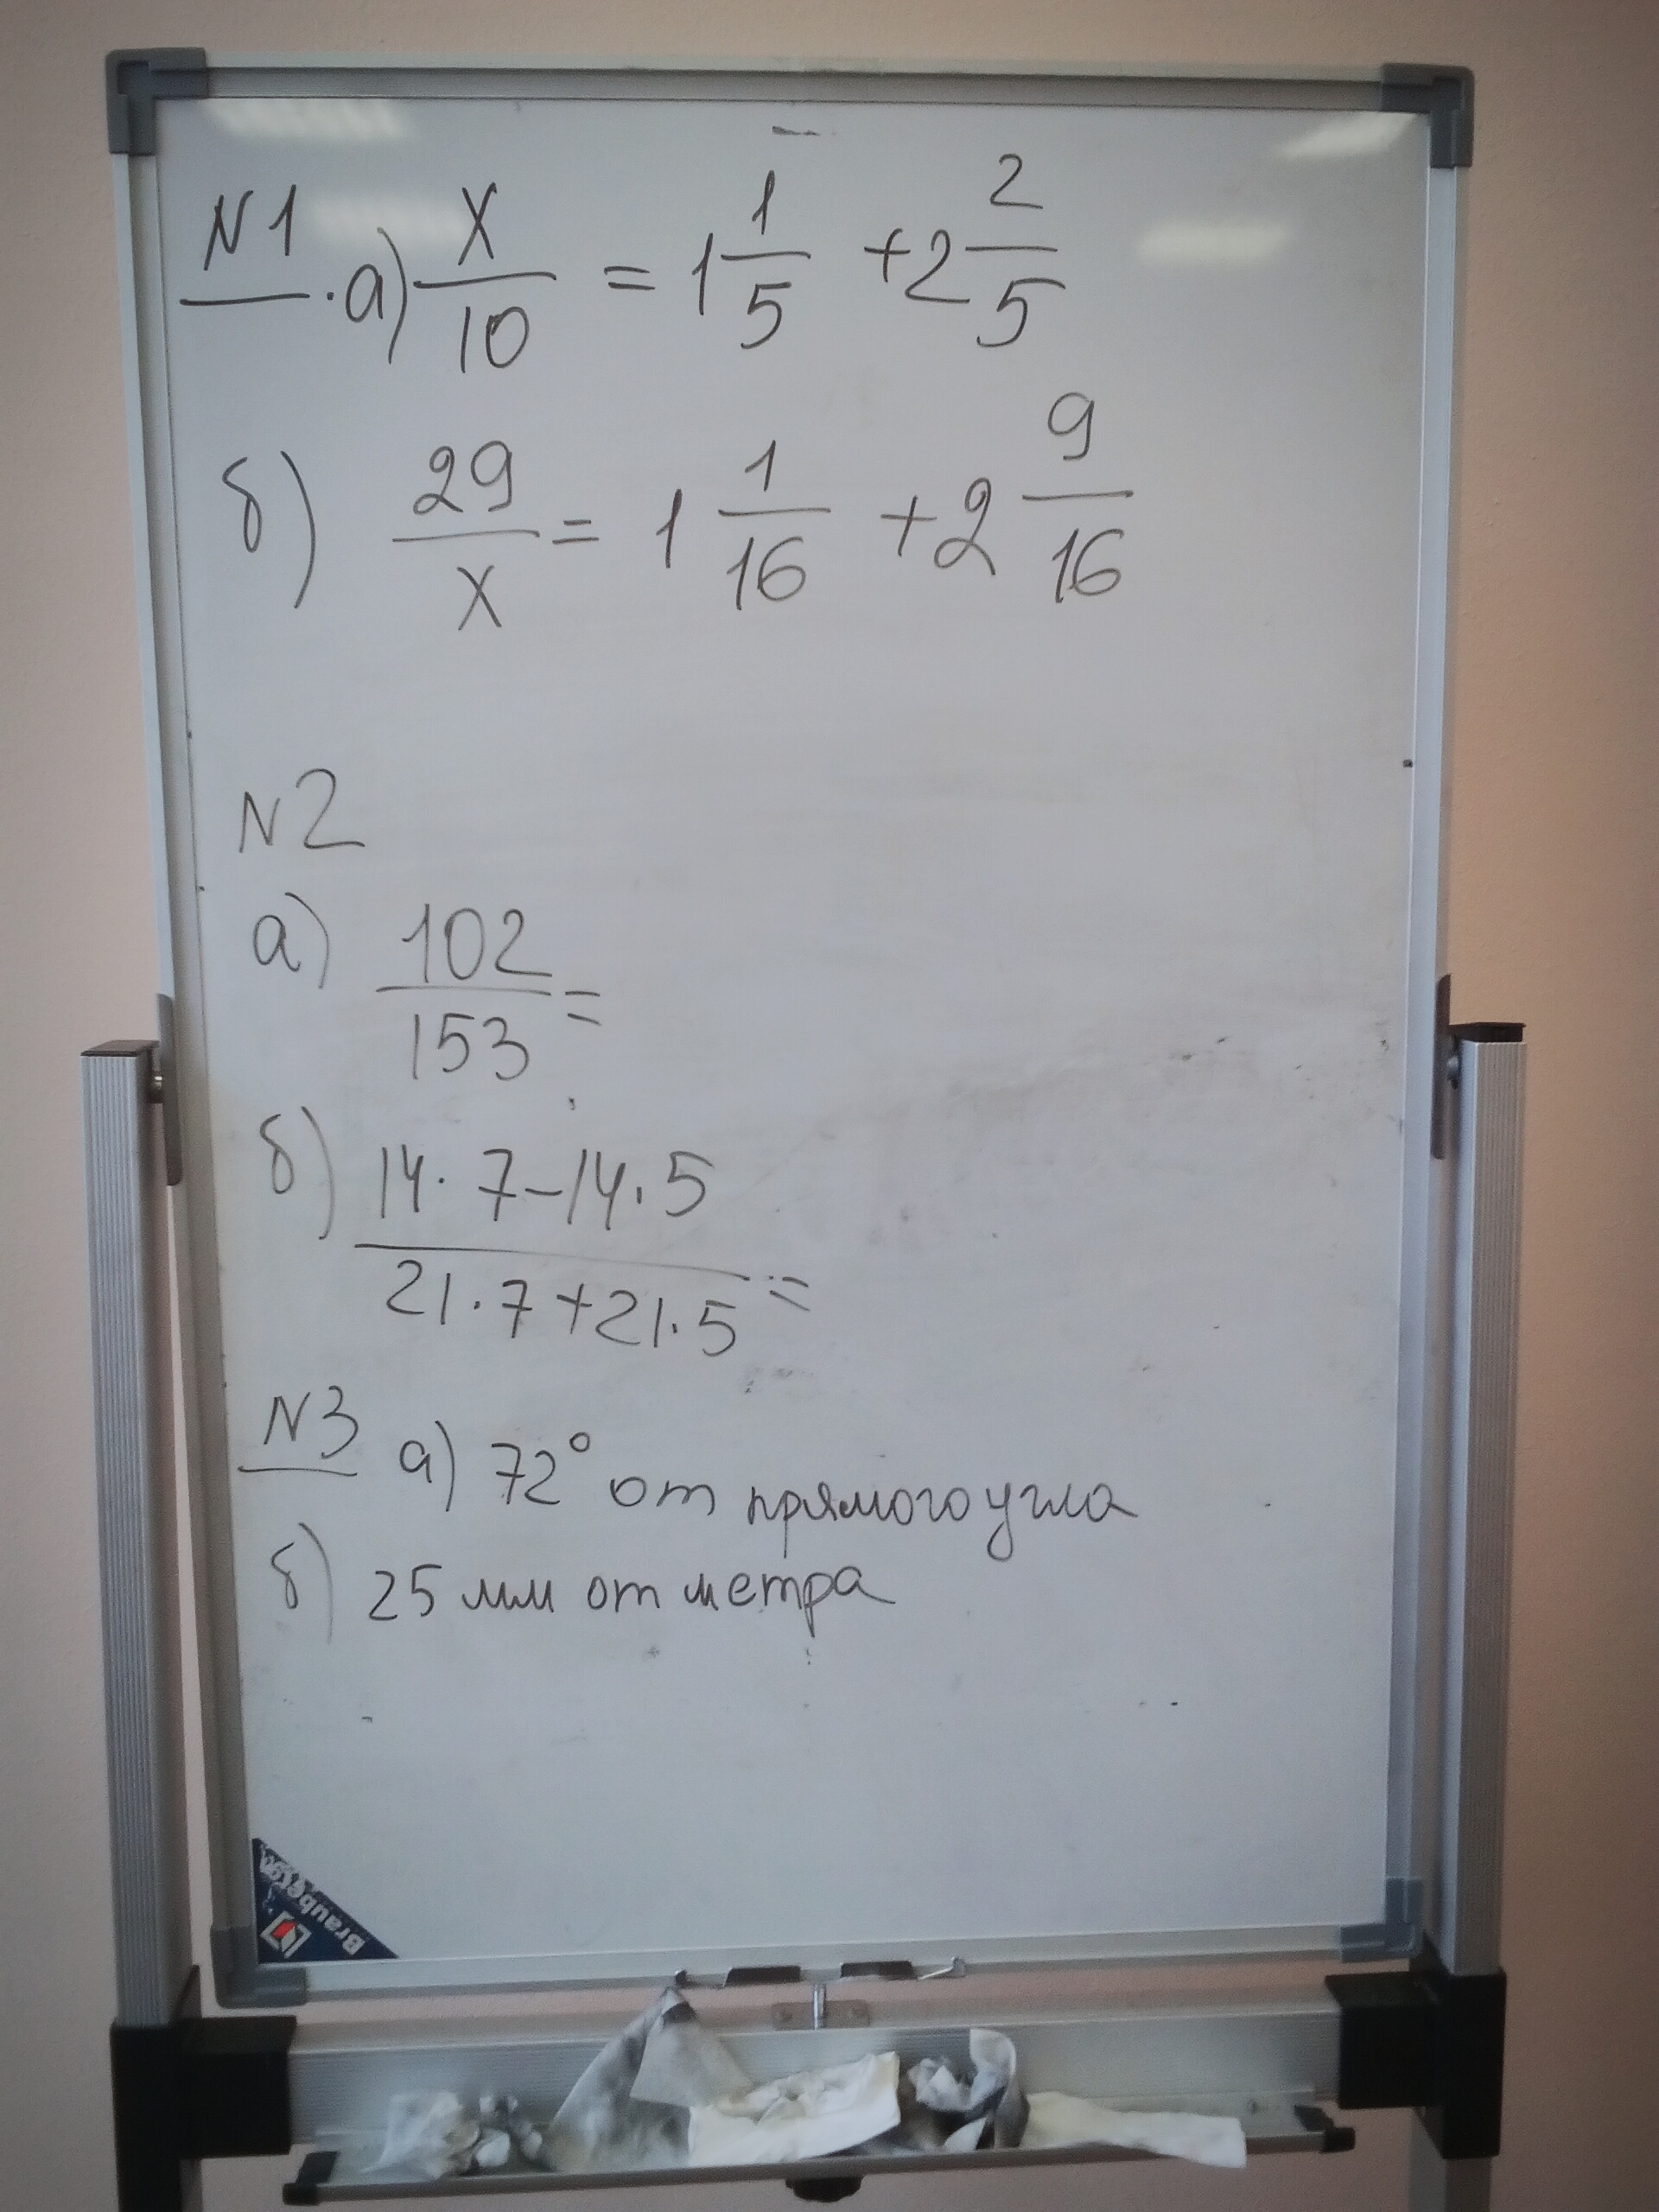 N1. а) x/10 = 1 1/5 + 2 2/5
б) 29/x = 1 1/16 + 2 9/16
N2
а) 102/153 =
б) 14·7-14·5/21·7+21·5 =
N3 а) 72° от прямого угла
б) 25 мм от метра
Brauberg